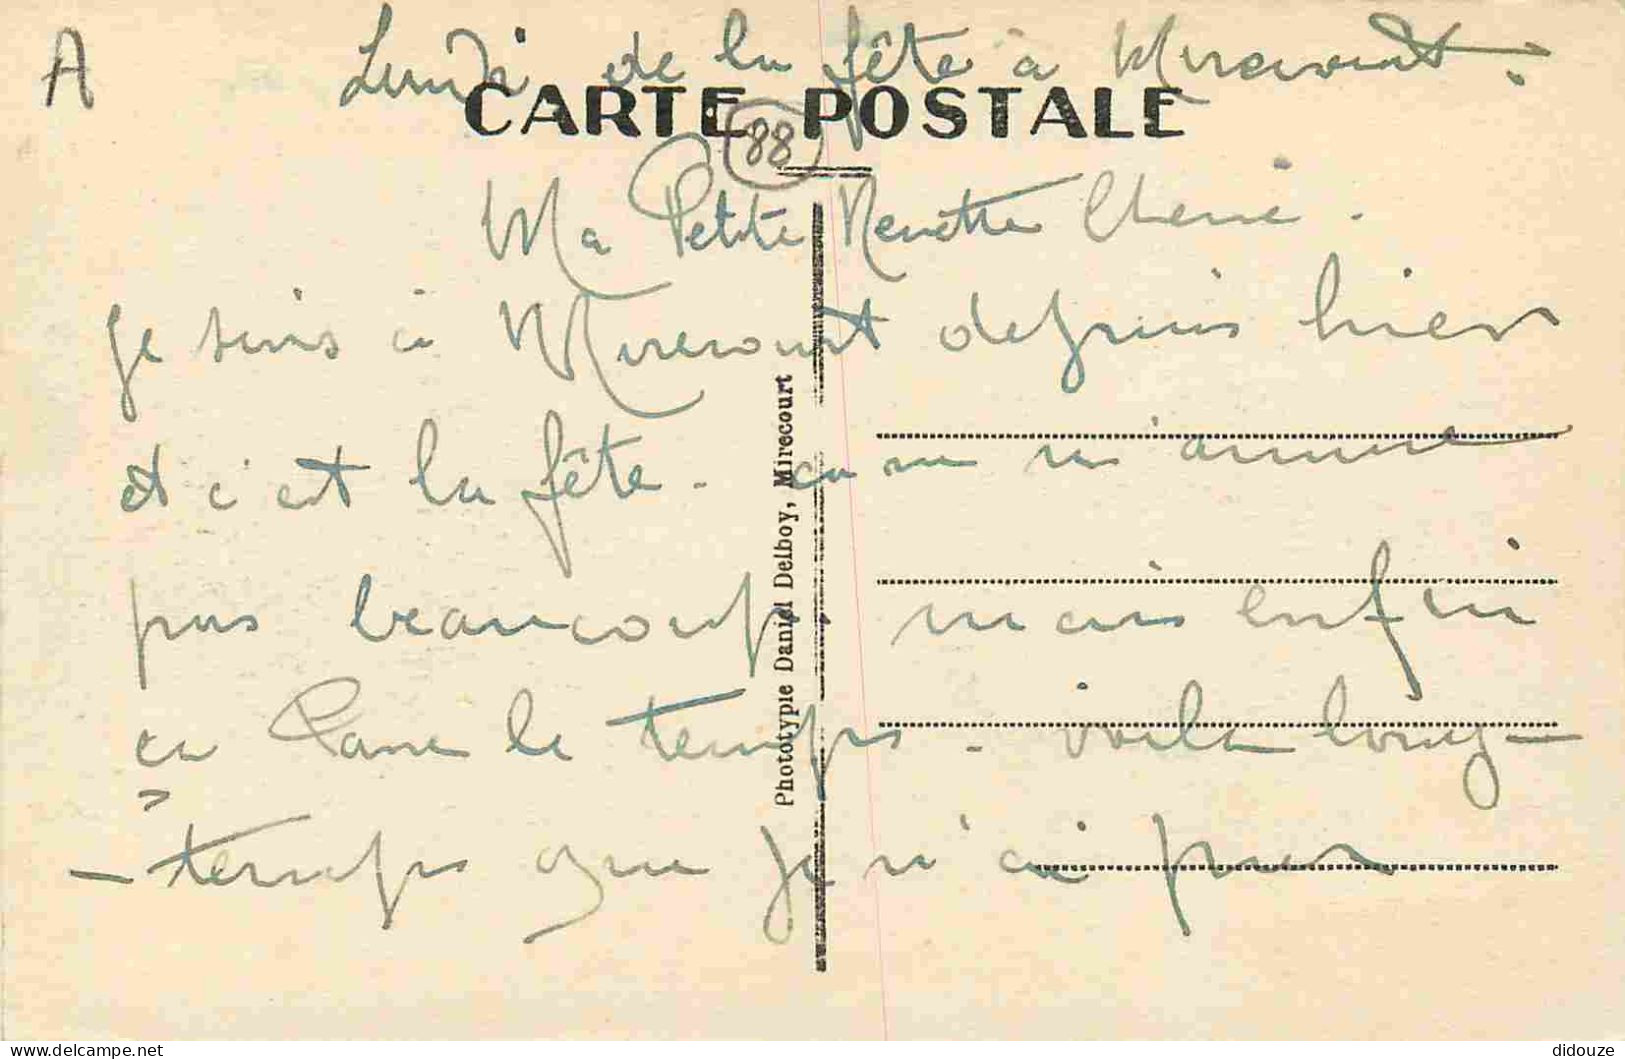 A
Lundi de la fête à Mirecourt.
CARTE POSTALE
88
Ma Petite Nenette Cherie.
Je suis à Mirecourt depuis hier
et c'est la fête. ça ne m'amuse
pas beaucoup. mais enfin
ça Passe le temps. voila long-
-temps que je n'ai pas
Phototypie Daniel Delboy, Mirecourt
delcampe.net
didouze